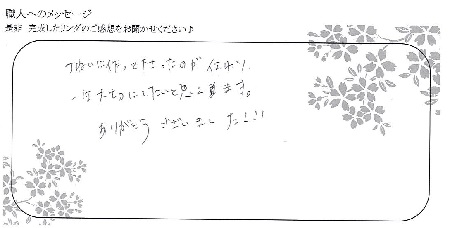 職人へのメッセージ
是非 完成したリングのご感想をお聞かせください♪
ていねいに作って下さったのが伝わり、
一生大切にしたいと思えます。
ありがとうございました!!